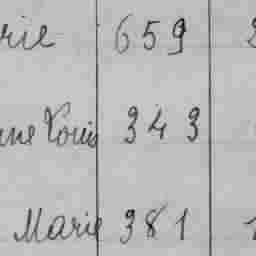 rie 659
ne Louis 343
Marie 381